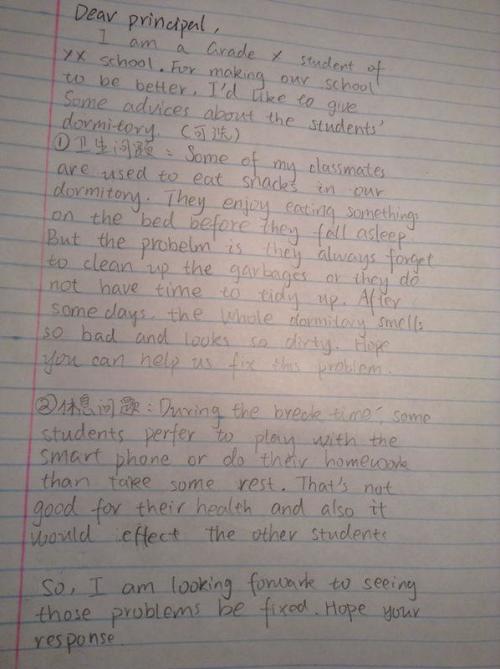 Dear principal,
I am a Grade x student of
xx school. For making our school
to be better, I'd like to give
Some advices about the students'
dormitory. (可选)
①卫生问题: Some of my classmates
are used to eat snacks in our
dormitory. They enjoy eating something
on the bed before they fall asleep.
But the probelm is they always forget
to clean up the garbages or they do
not have time to tidy up. After
some days, the whole dormitory smells
so bad and looks so dirty. Hope
you can help us fix this problem.
②休息问题: During the break time, some
students perfer to play with the
smart phone or do their homework
than take some rest. That's not
good for their health and also it
would effect the other students
So, I am looking forwark to seeing
those problems be fixed. Hope your
response.